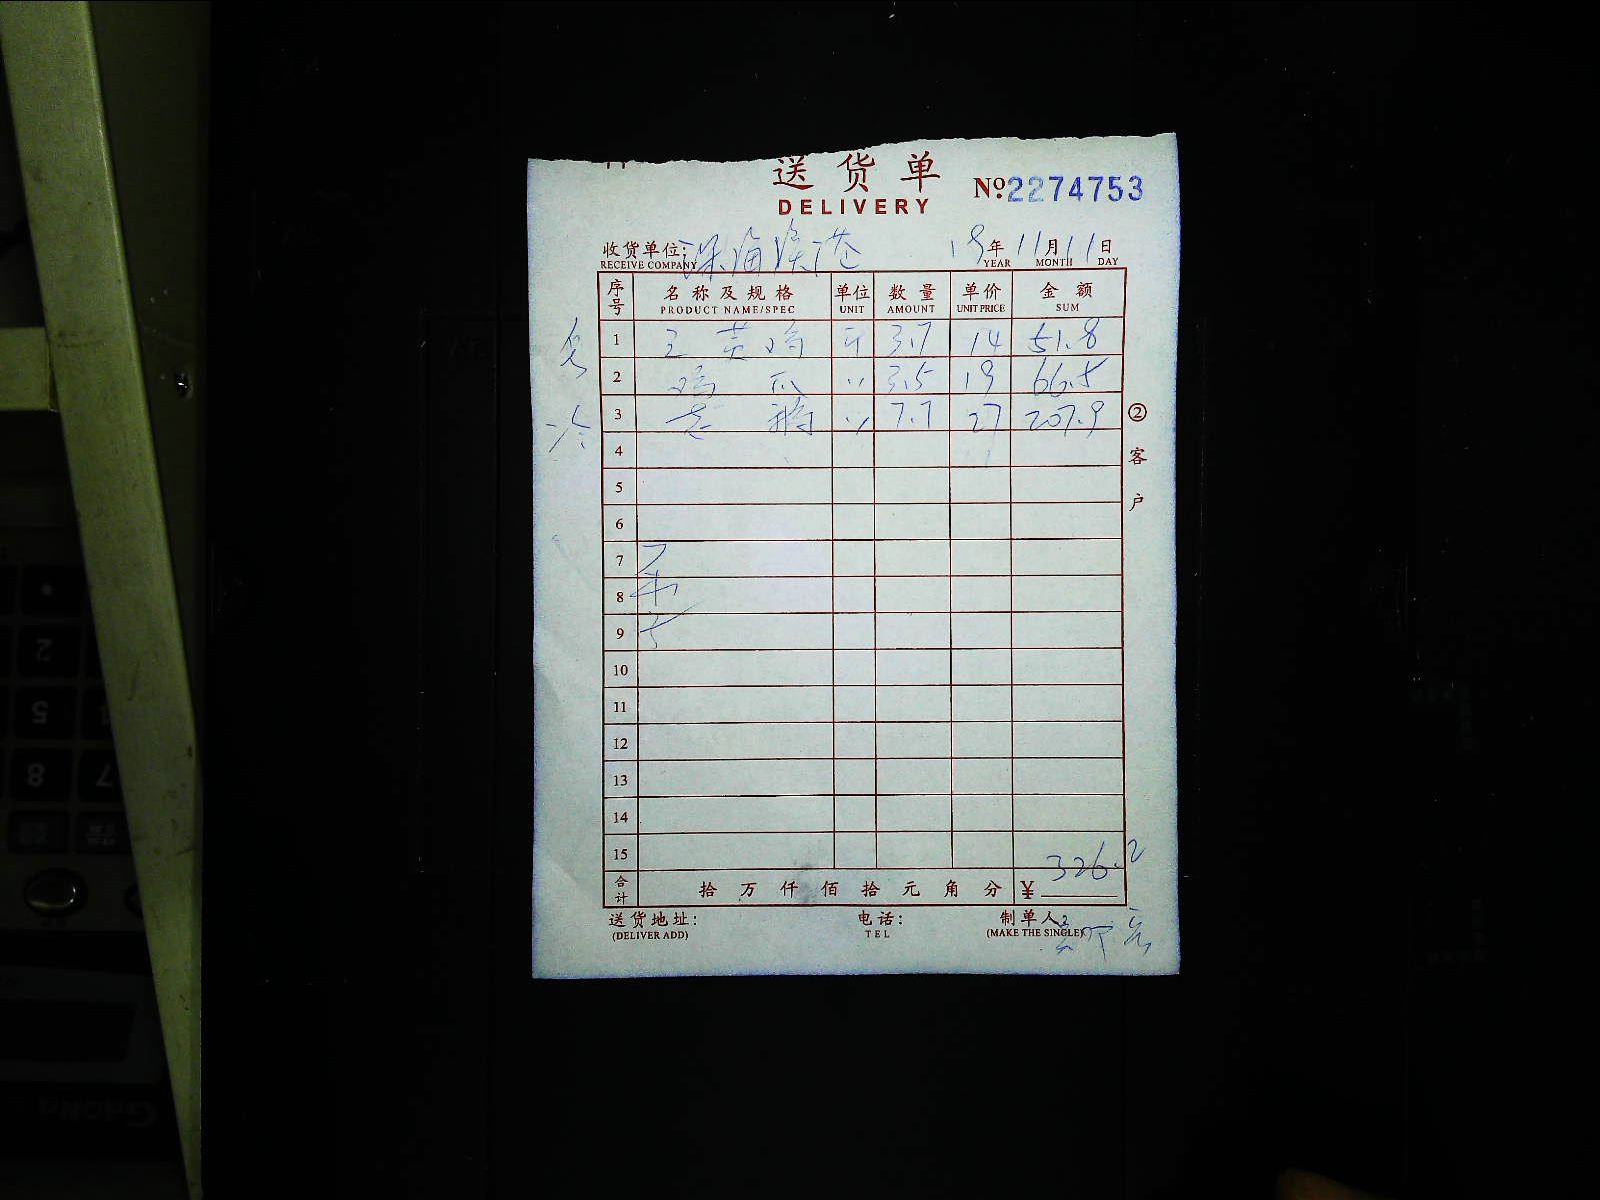 送货单
DELIVERY
Nº 2274753
收货单位: 深海渔港 19年11月11日
RECEIVE COMPANY YEAR MONTH DAY
序号 名称及规格 单位 数量 单价 金额
PRODUCT NAME/SPEC UNIT AMOUNT UNIT PRICE SUM
1 三黄鸡 斤 3.7 14 51.8
2 鸡爪 〃 3.5 19 66.5
3 老鸭 〃 7.7 27 207.9
4
5
6
7
8
9
10
11
12
13
14
15
326.2
合计 拾万仟佰拾元角分 ¥
送货地址: 电话: 制单人:
(DELIVER ADD) TEL (MAKE THE SINGLE)
②客户